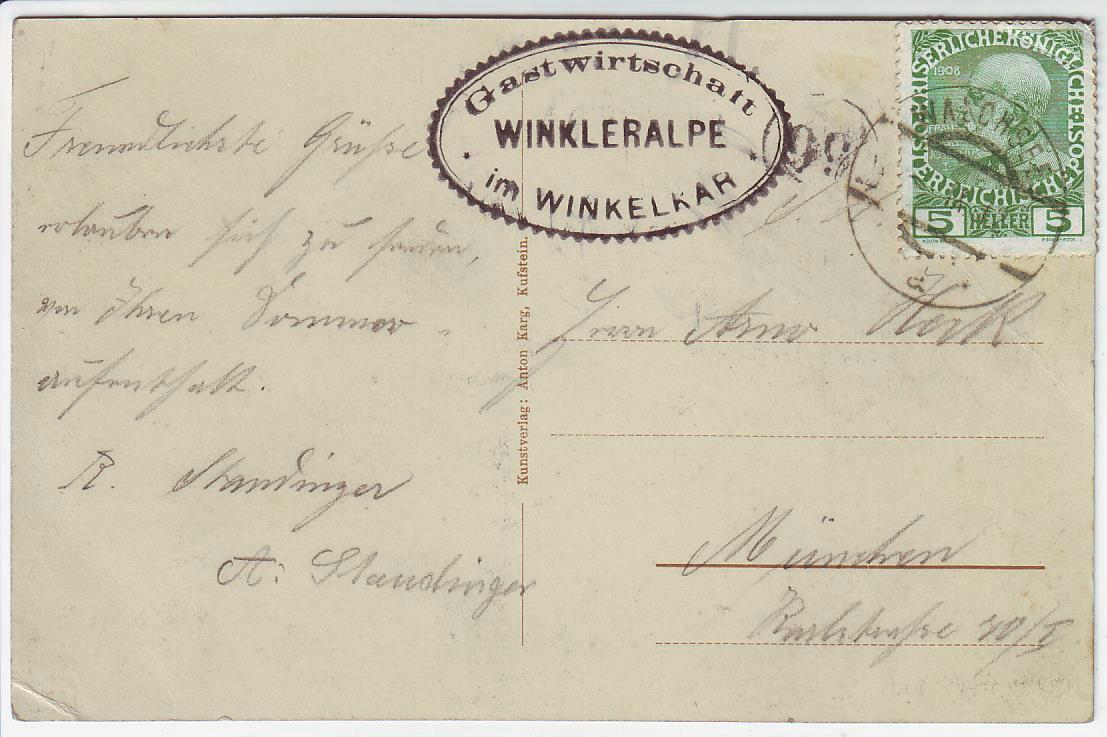 Gastwirtschaft
WINKLERALPE
im WINKELKAR
KAISERLICHE KÖNIGLICHE ÖSTERREICHISCHE POST
1908
FRANZ
5 HELLER 5
WALCHSEE
Freundlichste Grüße
erlauben sich zu senden,
von Ihren Sommer-
aufenthalt.
R. Staudinger
A. Staudinger
Kunstverlag: Anton Karg, Kufstein.
Herrn Arno
München
Karlstraße 40/I